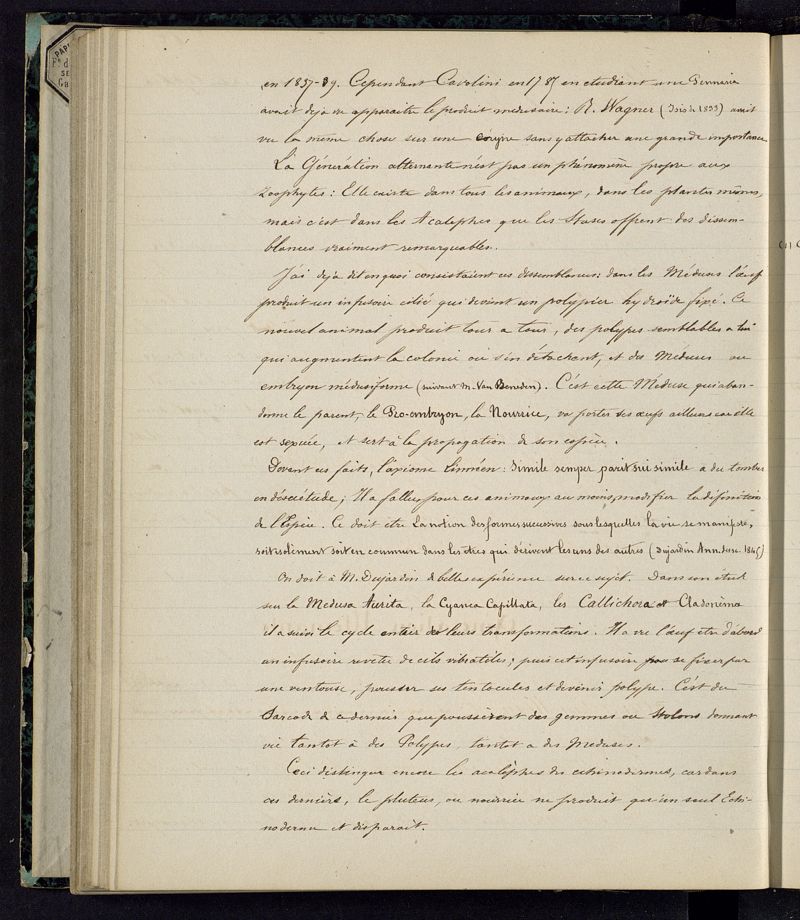 en 1837-39. Cependant Cavolini en 1787 en etudiant une Pennaria
avait deja vu apparaitre le produit medusaire: R. Wagner (Isis de 1833) avait
vu la même chose sur une coryne sans y attacher une grande importance
La Génération alternante n'est pas un phénomène propre aux
Zoophytes: Elle existe dans tous les animaux, dans les plantes mêmes,
mais c'est dans les Acalephes que les Stases offrent des dissem-
blances vraiment remarquables.
J'ai deja dit en quoi consistaient ces dessemblances: dans les Méduses l'œuf
produit un infusoire cilié qui devient un polypier hydroïde fixé. Ce
nouvel animal produit tour a tour, des polypes semblables a lui
qui augmentent la colonie ou s'en détachent, et des Méduses ou
embryon méduseforme (suivant M. Van Beneden). C'est cette Méduse qui aban-
donne le parent, le Pro-embryon, la Nourrice, va porter ses œufs ailleurs car elle
est sexuée, et sert à la propagation de son espèce.
Devant ces faits, l'axiome linnéen: Simile semper parit sui simile a du tomber
en désuétude; Il a fallu pour ces animaux au moins, modifier la définition
de l'Espèce. Ce doit être La notion des formes successives sous lesquelles la vie se manifeste,
soit isolément soit en commun dans les etres qui dérivent les uns des autres (Dujardin Ann. des sc. 1845)
On doit à M. Dujardin de belles expérience sur ce sujet. Dans son étude
sur la Medusa Aurita, la Cyanea Capillata, les Callichora et Cladonema
il a suivi le cycle entier de leurs transformations. Il a vu l'œuf etre d'abord
un infusoire revetu de cils vibratiles; puis cet infusoire se fixer par
une ventouse, pousser ses tentacules et devenir polype. C'est du
Sarcode de ce dernier que poussèrent des gemmes ou Stolons donnant
vie tantot à des Polypes, tantot a des Meduses.
Ceci distingue encore les acalèphes des echinodermes, car dans
ces derniers, le pluteus, ou nourrice ne produit qu'un seul Echi-
noderme et disparait.